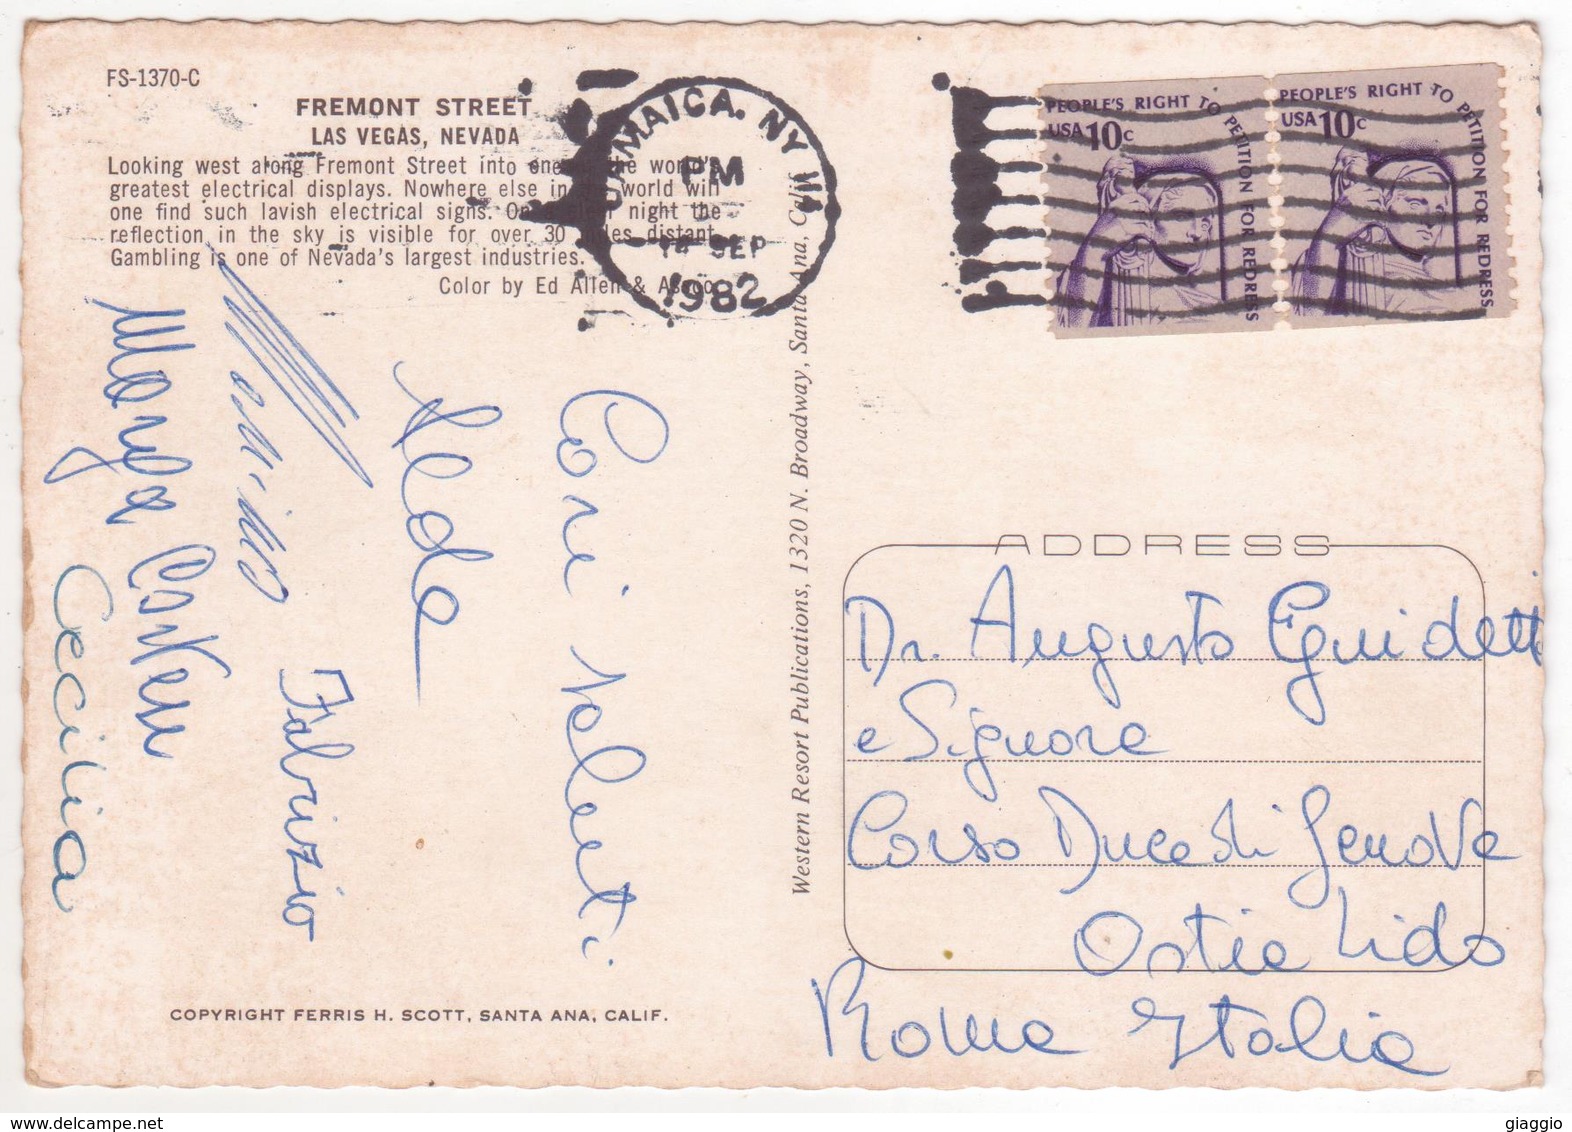 FS-1370-C
FREMONT STREET
LAS VEGAS, NEVADA
Looking west along Fremont Street into one the world's
greatest electrical displays. Nowhere else in world will
one find such lavish electrical signs. On night the
reflection in the sky is visible for over 30 distant.
Gambling is one of Nevada's largest industries.
Color by Ed Allen &
JAMAICA, NY
PM
14 SEP
1982
PEOPLE'S RIGHT TO PETITION FOR REDRESS
USA 10c
PEOPLE'S RIGHT TO PETITION FOR REDRESS
USA 10c
Cari saluti.
Alda
Fabrizio
Cecilia
Western Resort Publications, 1320 N. Broadway, Santa Ana, Calif.
ADDRESS
Dr. Augusto Eguidetti
e Signora
Corso Duca di Genova
Ostia Lido
Roma Italia
COPYRIGHT FERRIS H. SCOTT, SANTA ANA, CALIF.
www.delcampe.net
giaggio